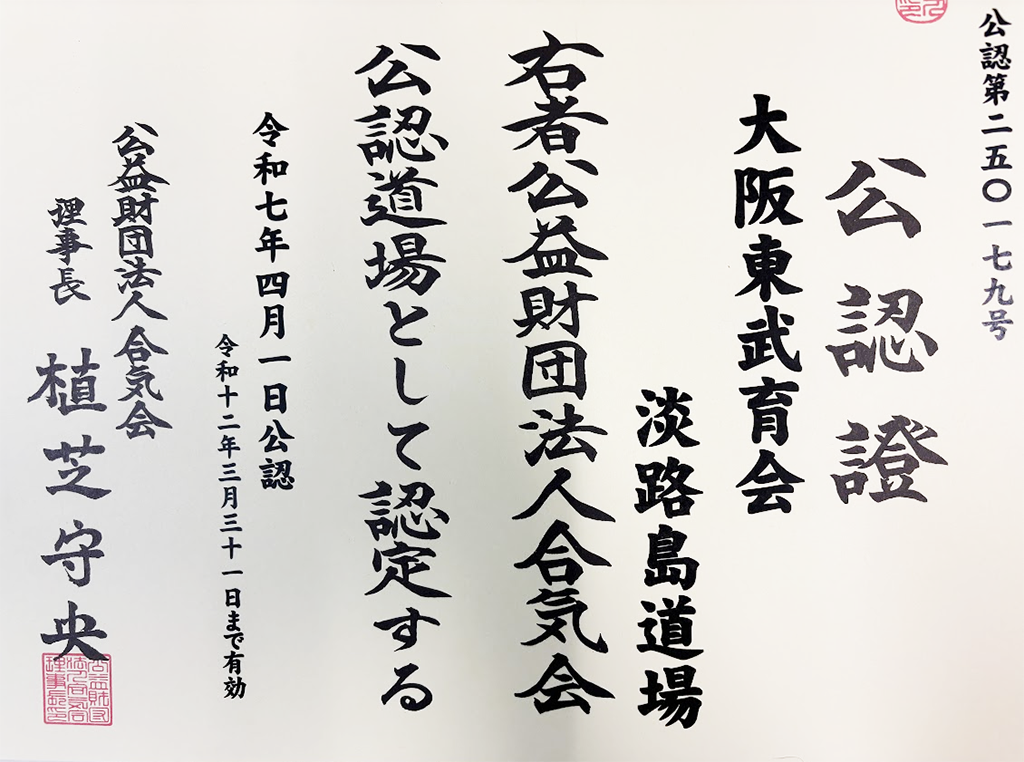 公認第二五〇一七九号
公認證
大阪東武育会
淡路島道場
右者公益財団法人合気会
公認道場として認定する
令和七年四月一日公認
令和十二年三月三十一日まで有効
公益財団法人合気会
理事長 植芝守央